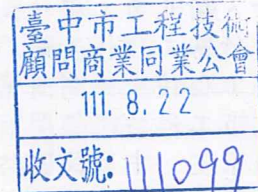 臺中市工程技術
顧問商業同業公會
111. 8. 22
收文號:111099